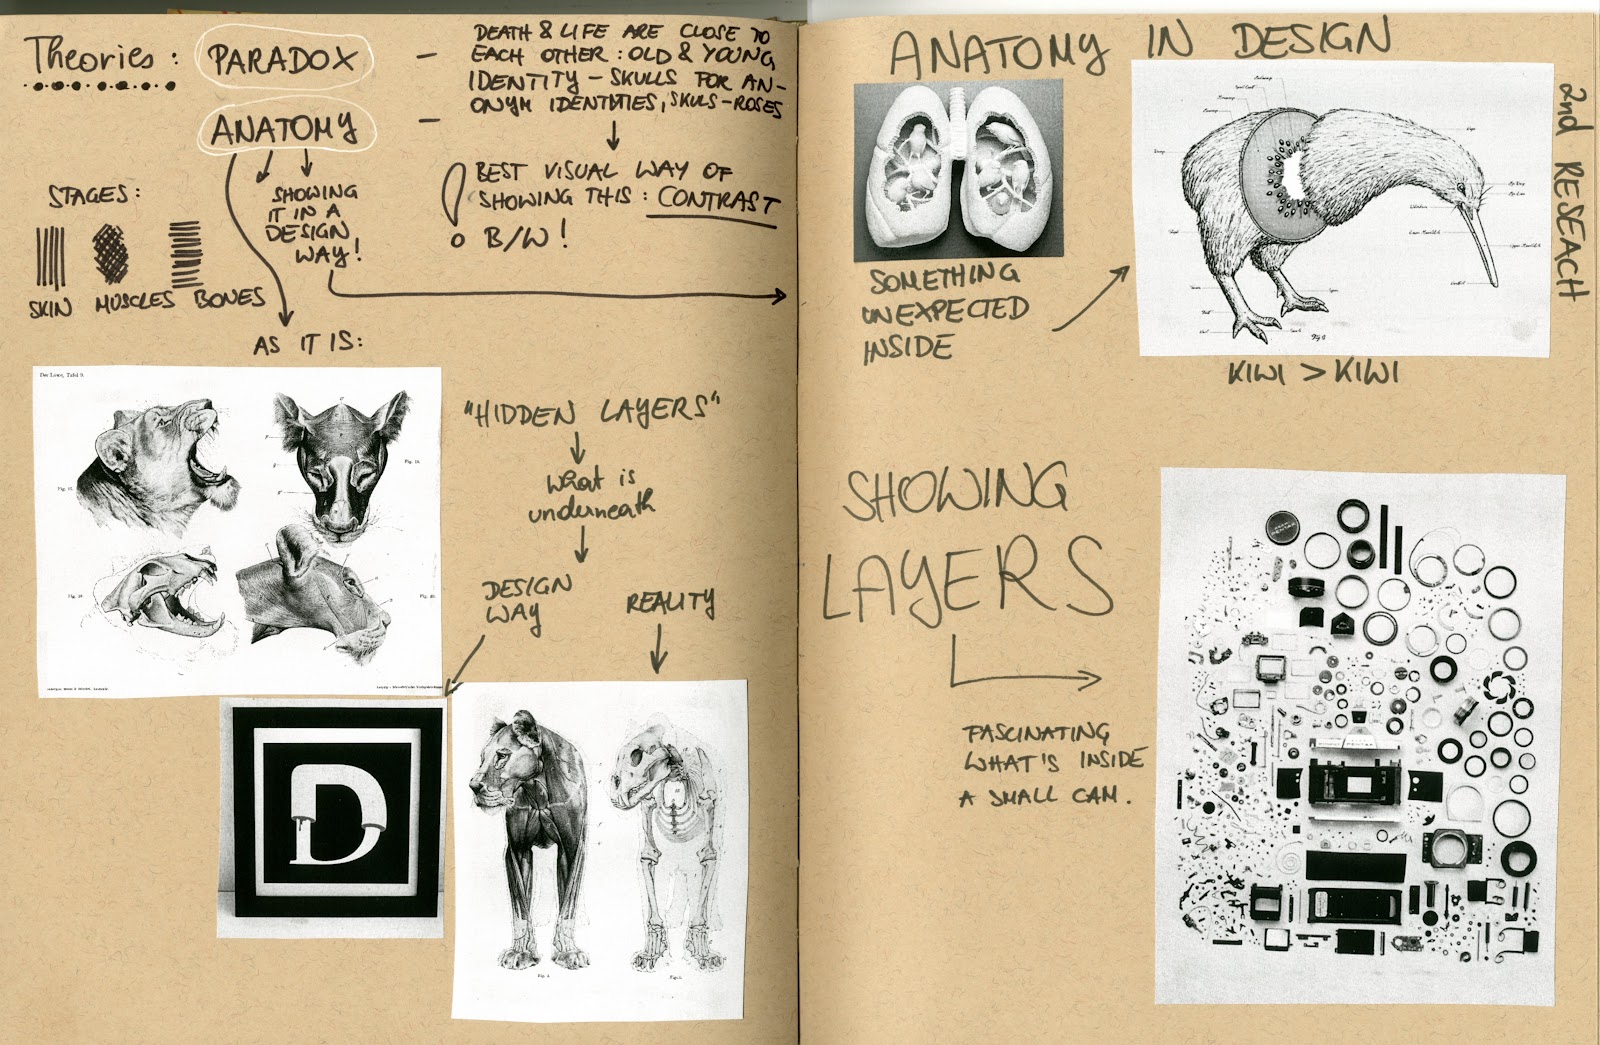 Theories: PARADOX -
DEATH & LIFE ARE CLOSE TO
EACH OTHER: OLD & YOUNG
IDENTITY - SKULLS FOR AN-
ONYM IDENTITIES, SKULS-ROSES
ANATOMY -
BEST VISUAL WAY OF
SHOWING THIS: CONTRAST
B/W!
STAGES:
SKIN MUSCLES BONES
SHOWING
IT IN A
DESIGN
WAY!
AS IT IS:
Der Löwe, Tafel 9.
"HIDDEN LAYERS"
What is
underneath
DESIGN
WAY
REALITY
D
ANATOMY IN DESIGN
2nd RESEACH
SOMETHING
UNEXPECTED
INSIDE
KIWI > KIWI
SHOWING
LAYERS
FASCINATING
WHAT'S INSIDE
A SMALL CAM.